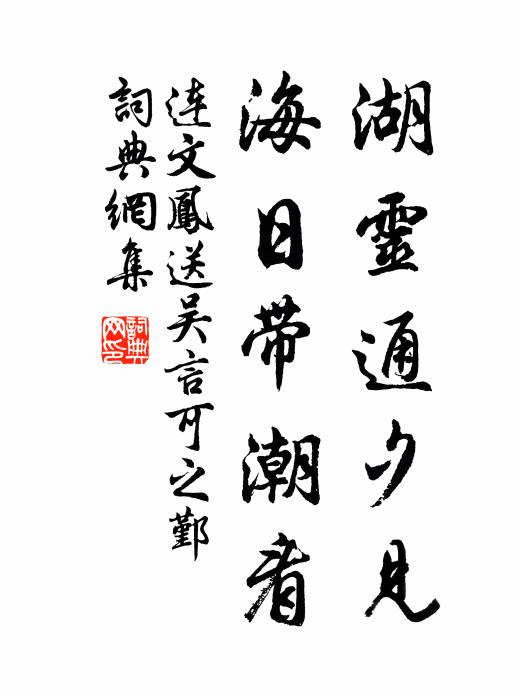 湖靈通夕見
海日帶潮看
連文鳳送吳言可之鄞
詞典網集
詞典網印